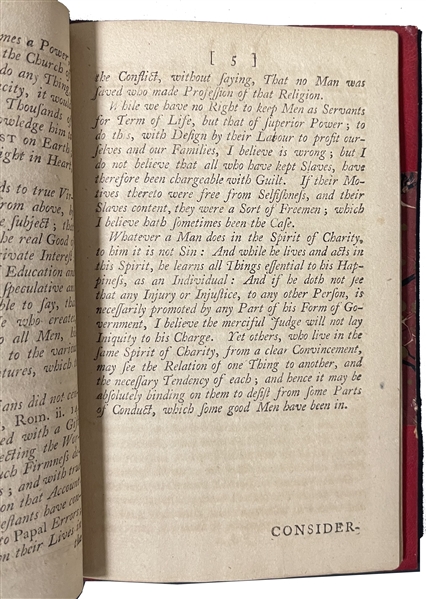 mes a Power
the Church of
do any Thing
city, it would
Thousands of
owledge him in
ST on Earth
ght in Heart
ds to true Vir-
rom above, by
e subject; th
he real Good of
rivate Interest
Education and
speculative and
ble to say, that
e who created
o all Men, h
to the various
ptures, which
ans did not
, Rom. ii. 14
ed with a
ecting the Wor
uch Firmness
; and with
on that Account
estants have con
to Papal Errors
on their Lives in
the
[ 5 ]
the Conflict, without ſaying, That no Man was
ſaved who made Profeſſion of that Religion.
While we have no Right to keep Men as Servants
for Term of Life, but that of ſuperior Power; to
do this, with Deſign by their Labour to profit our-
ſelves and our Families, I believe is wrong; but I
do not believe that all who have kept Slaves, have
therefore been chargeable with Guilt. If their Mo-
tives thereto were free from Selfiſhneſs, and their
Slaves content, they were a Sort of Freemen; which
I believe hath ſometimes been the Caſe.
Whatever a Man does in the Spirit of Charity,
to him it is not Sin: And while he lives and acts in
this Spirit, he learns all Things eſſential to his Hap-
pineſs, as an Individual: And if he doth not ſee
that any Injury or Injuſtice, to any other Perſon, is
neceſſarily promoted by any Part of his Form of Go-
vernment, I believe the merciful Judge will not lay
Iniquity to his Charge. Yet others, who live in the
ſame Spirit of Charity, from a clear Convincement,
may ſee the Relation of one Thing to another, and
the neceſſary Tendency of each; and hence it may be
abſolutely binding on them to deſiſt from ſome Parts
of Conduct, which ſome good Men have been in.
CONSIDER-